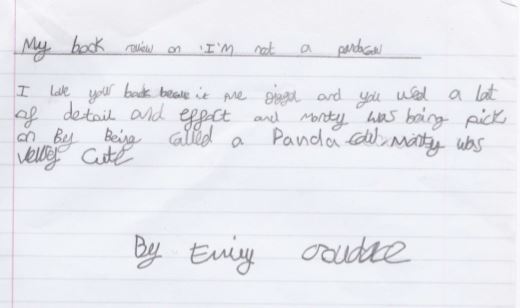 My book review on 'I'm not a
I love your book because it me and you used a lot
of detail and effort and Monty was being pick
on By Being called a Panda Monty was
verey cute
By Emily